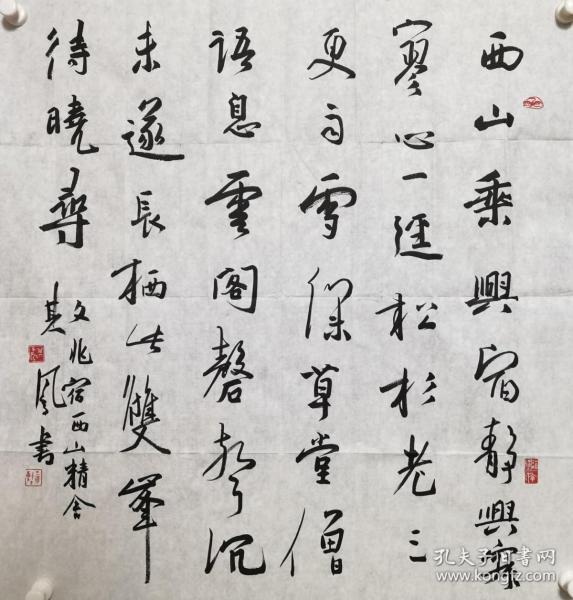 西山乘興宿靜興寂
寥心一徑松杉老三
更雨雪深草堂僧
語息雲閣磬聲沉
未遂長栖此雙峯
待曉尋
文兆宿西山精舍
其風書
孔夫子旧书网
www.kongfz.com